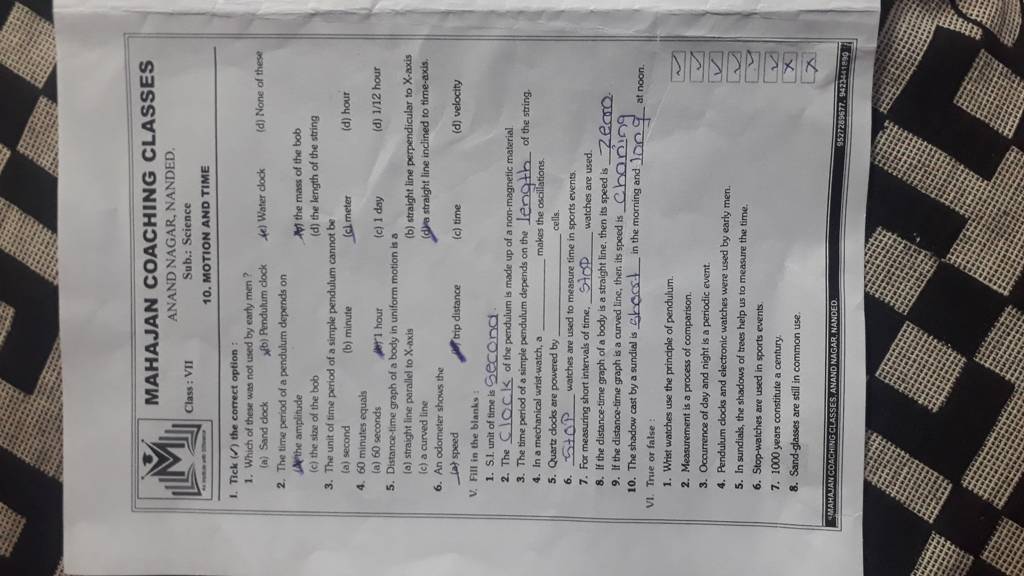 MAHAJAN COACHING CLASSES
ANAND NAGAR, NANDED.
Class : VII Sub.: Science
10. MOTION AND TIME
I. Tick (✓) the correct option :
1. Which of these was not used by early men ?
(a) Sand clock (b) Pendulum clock (c) Water clock (d) None of these
2. The time period of a pendulum depends on
the amplitude (b) the mass of the bob
(c) the size of the bob (d) the length of the string
3. The unit of time period of a simple pendulum cannot be
(a) second (b) minute (c) meter (d) hour
4. 60 minutes equals
(a) 60 seconds 1 hour (c) 1 day (d) 1/12 hour
5. Distance-time graph of a body in uniform motion is a
(a) straight line parallel to X-axis (b) straight line perpendicular to X-axis
(c) a curved line (d) a straight line inclined to time-axis.
6. An odometer shows the
(a) speed trip distance (c) time (d) velocity
V. Fill in the blanks :
1. S.I. unit of time is second.
2. The clock of the pendulum is made up of a non-magnetic material.
3. The time period of a simple pendulum depends on the length of the string.
4. In a mechanical wrist-watch, a ________ makes the oscillations.
5. Quartz clocks are powered by ________ cells.
6. stop watches are used to measure time in sports events.
7. For measuring short intervals of time, stop watches are used.
8. If the distance-time graph of a body is a straight line, then its speed is zero.
9. If the distance-time graph is a curved line, then its speed is chaning
10. The shadow cast by a sundial is short in the morning and long at noon.
VI. True or false :
1. Wrist watches use the principle of pendulum. ✓
2. Measurement is a process of comparison. ✓
3. Occurrence of day and night is a periodic event. ✓
4. Pendulum clocks and electronic watches were used by early men. ✓
5. In sundials, the shadows of trees help us to measure the time. ✓
6. Stop-watches are used in sports events. ✓
7. 1000 years constitute a century. ✗
8. Sand-glasses are still in common use. ✗
MAHAJAN COACHING CLASSES, ANAND NAGAR, NANDED.